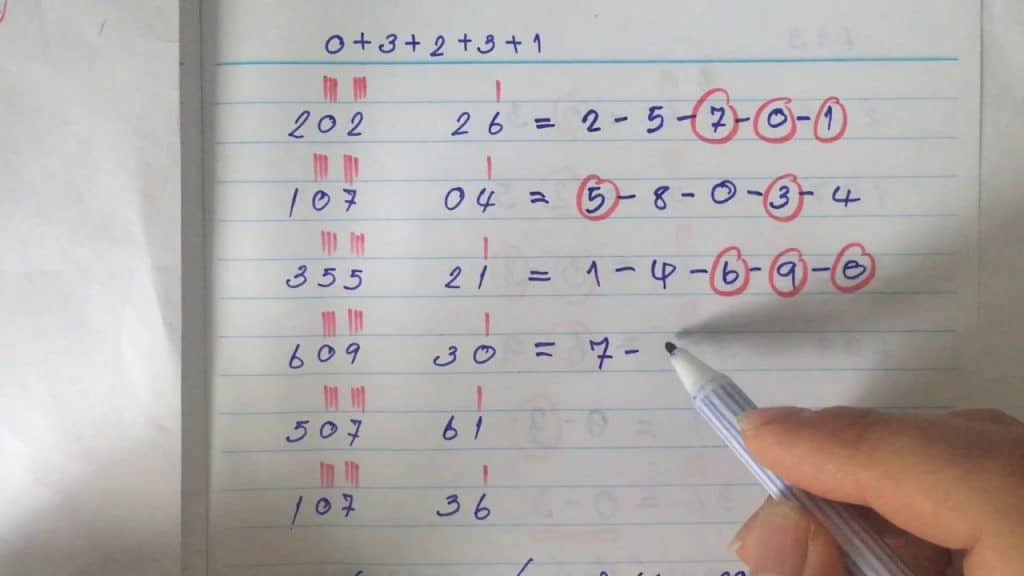 0+3+2+3+1
202 26 = 2-5-7-0-1
107 04 = 5-8-0-3-4
355 21 = 1-4-6-9-8
609 30 = 7-
507 61
107 36